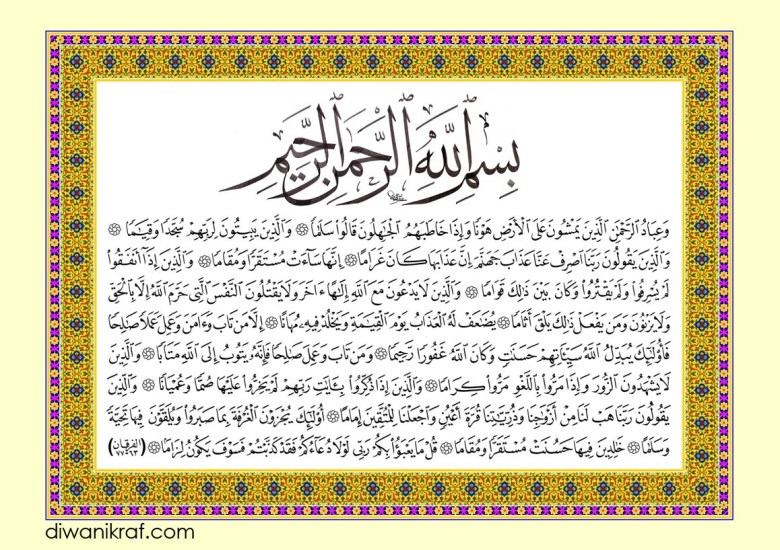 بِسْمِ اللَّهِ الرَّحْمَٰنِ الرَّحِيمِ
وَعِبَادُ الرَّحْمَٰنِ الَّذِينَ يَمْشُونَ عَلَى الْأَرْضِ هَوْنًا وَإِذَا خَاطَبَهُمُ الْجَاهِلُونَ قَالُوا سَلَامًا ۞ وَالَّذِينَ يَبِيتُونَ لِرَبِّهِمْ سُجَّدًا وَقِيَامًا ۞
وَالَّذِينَ يَقُولُونَ رَبَّنَا اصْرِفْ عَنَّا عَذَابَ جَهَنَّمَ إِنَّ عَذَابَهَا كَانَ غَرَامًا ۞ إِنَّهَا سَاءَتْ مُسْتَقَرًّا وَمُقَامًا ۞ وَالَّذِينَ إِذَا أَنْفَقُوا
لَمْ يُسْرِفُوا وَلَمْ يَقْتُرُوا وَكَانَ بَيْنَ ذَٰلِكَ قَوَامًا ۞ وَالَّذِينَ لَا يَدْعُونَ مَعَ اللَّهِ إِلَٰهًا ءَاخَرَ وَلَا يَقْتُلُونَ النَّفْسَ الَّتِي حَرَّمَ اللَّهُ إِلَّا بِالْحَقِّ
وَلَا يَزْنُونَ وَمَنْ يَفْعَلْ ذَٰلِكَ يَلْقَ أَثَامًا ۞ يُضَٰعَفْ لَهُ الْعَذَابُ يَوْمَ الْقِيَٰمَةِ وَيَخْلُدْ فِيهِ مُهَانًا ۞ إِلَّا مَنْ تَابَ وَءَامَنَ وَعَمِلَ عَمَلًا صَٰلِحًا
فَأُولَٰئِكَ يُبَدِّلُ اللَّهُ سَيِّئَاتِهِمْ حَسَنَٰتٍ وَكَانَ اللَّهُ غَفُورًا رَحِيمًا ۞ وَمَنْ تَابَ وَعَمِلَ صَٰلِحًا فَإِنَّهُ يَتُوبُ إِلَى اللَّهِ مَتَابًا ۞ وَالَّذِينَ
لَا يَشْهَدُونَ الزُّورَ وَإِذَا مَرُّوا بِاللَّغْوِ مَرُّوا كِرَامًا ۞ وَالَّذِينَ إِذَا ذُكِّرُوا بِـَٔايَٰتِ رَبِّهِمْ لَمْ يَخِرُّوا عَلَيْهَا صُمًّا وَعُمْيَانًا ۞ وَالَّذِينَ
يَقُولُونَ رَبَّنَا هَبْ لَنَا مِنْ أَزْوَٰجِنَا وَذُرِّيَّٰتِنَا قُرَّةَ أَعْيُنٍ وَاجْعَلْنَا لِلْمُتَّقِينَ إِمَامًا ۞ أُولَٰئِكَ يُجْزَوْنَ الْغُرْفَةَ بِمَا صَبَرُوا وَيُلَقَّوْنَ فِيهَا تَحِيَّةً
وَسَلَٰمًا ۞ خَٰلِدِينَ فِيهَا حَسُنَتْ مُسْتَقَرًّا وَمُقَامًا ۞ قُلْ مَا يَعْبَؤُا بِكُمْ رَبِّي لَوْلَا دُعَاؤُكُمْ فَقَدْ كَذَّبْتُمْ فَسَوْفَ يَكُونُ لِزَامًا ۞ (الفرقان ٦٣-٧٧)
diwanikraf.com